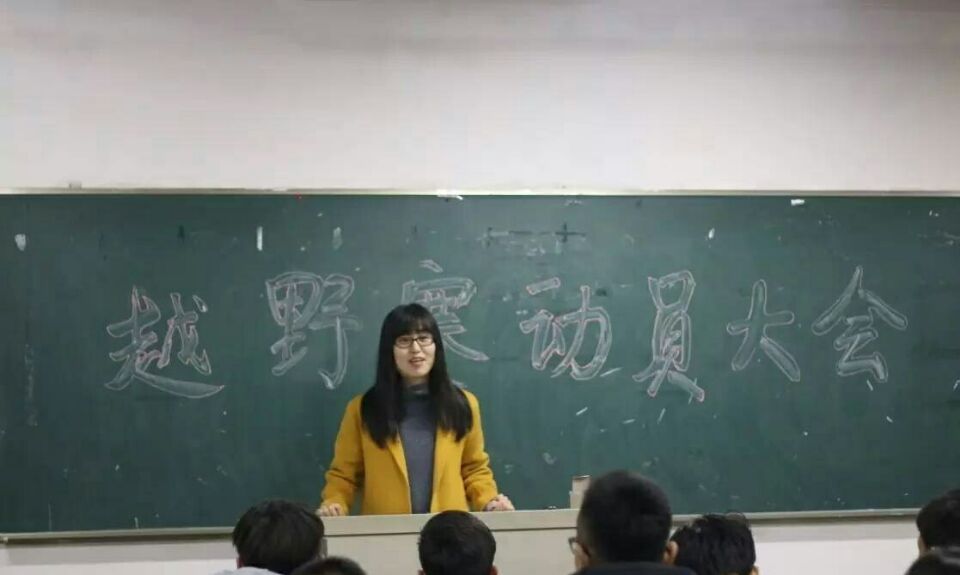 越野赛动员大会